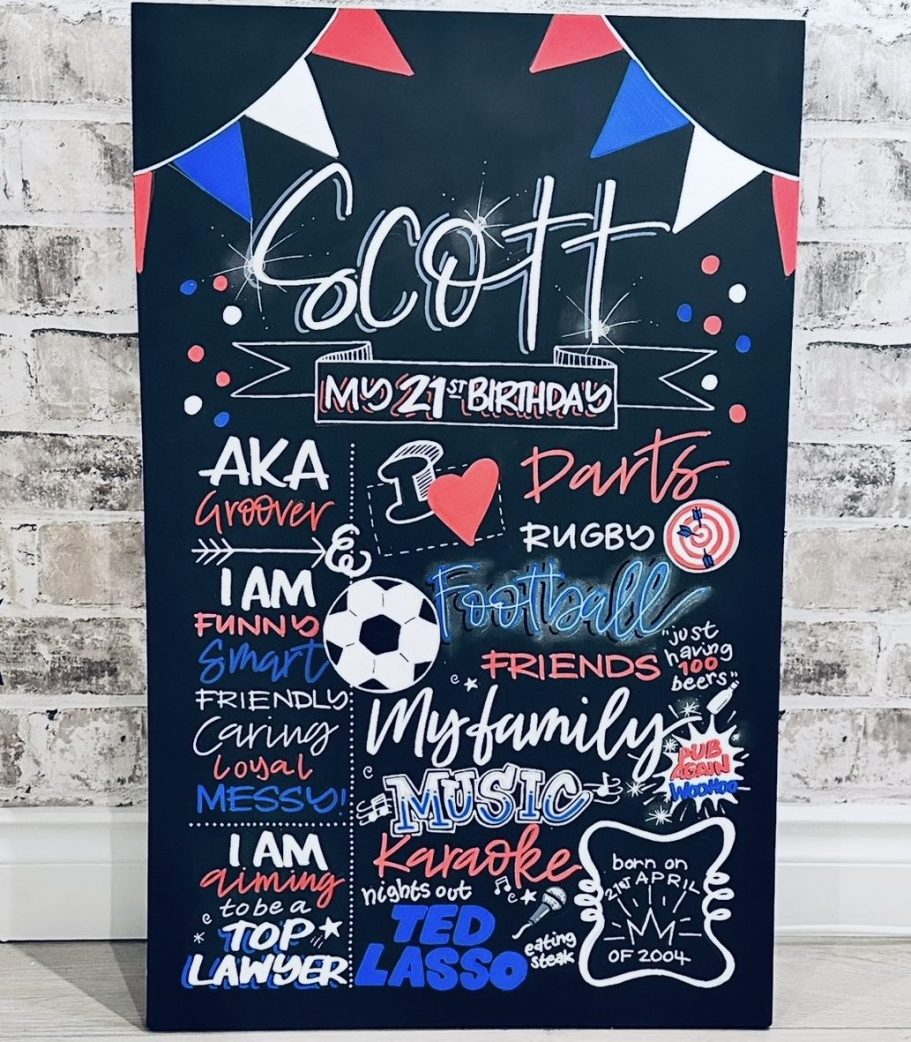 Scott
MY 21ST BIRTHDAY
AKA
Groover
&
I AM
FUNNY
Smart
FRIENDLY
Caring
loyal
MESSY!
I AM
aiming
to be a
TOP
LAWYER
I
Darts
RUGBY
Football
FRIENDS
"just
having
100
beers"
My family
PUB
AGAIN
WOOHOO
MUSIC
Karaoke
nights out
TED
LASSO
eating
steak
born on
21ST APRIL
OF 2004